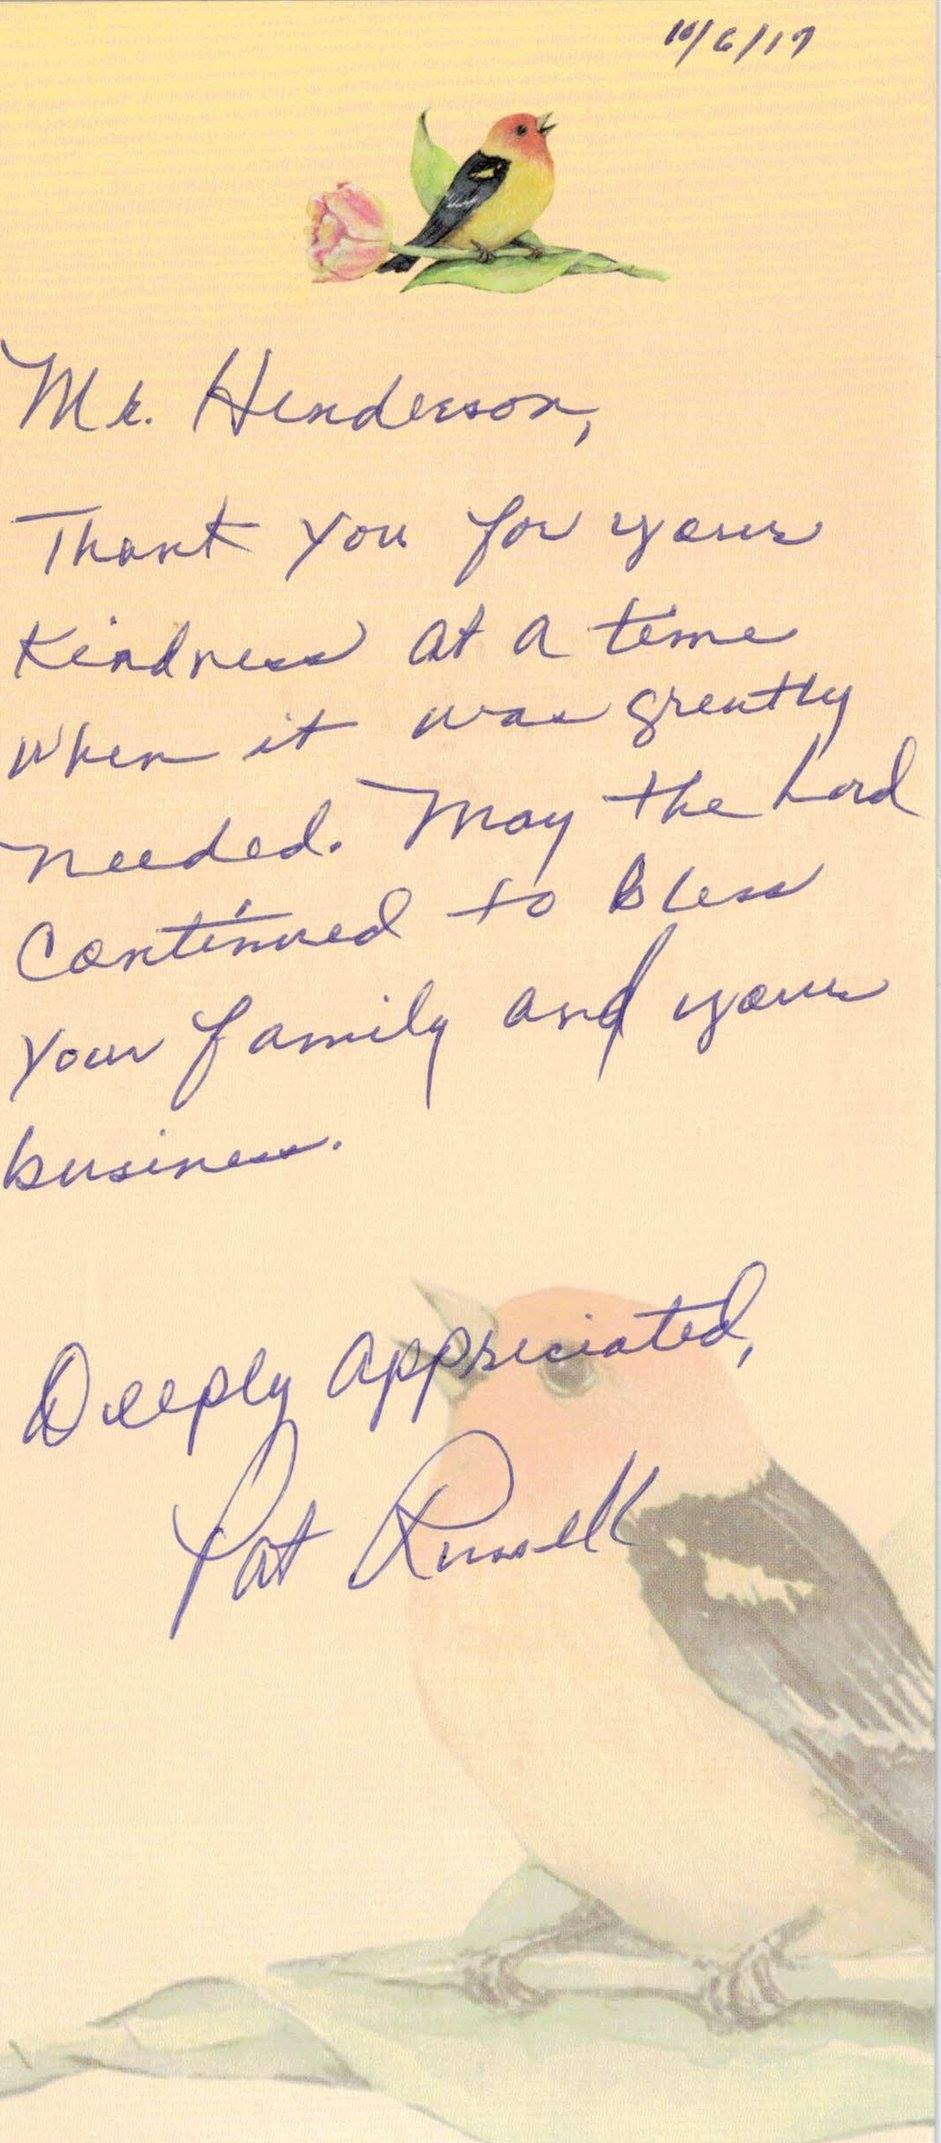 10/6/17
Mr. Henderson,
Thank you for your
Kindness at a time
when it was greatly
needed. May the Lord
Continued to Bless
your family and your
business.
Deeply appriciated,
Pat Russell